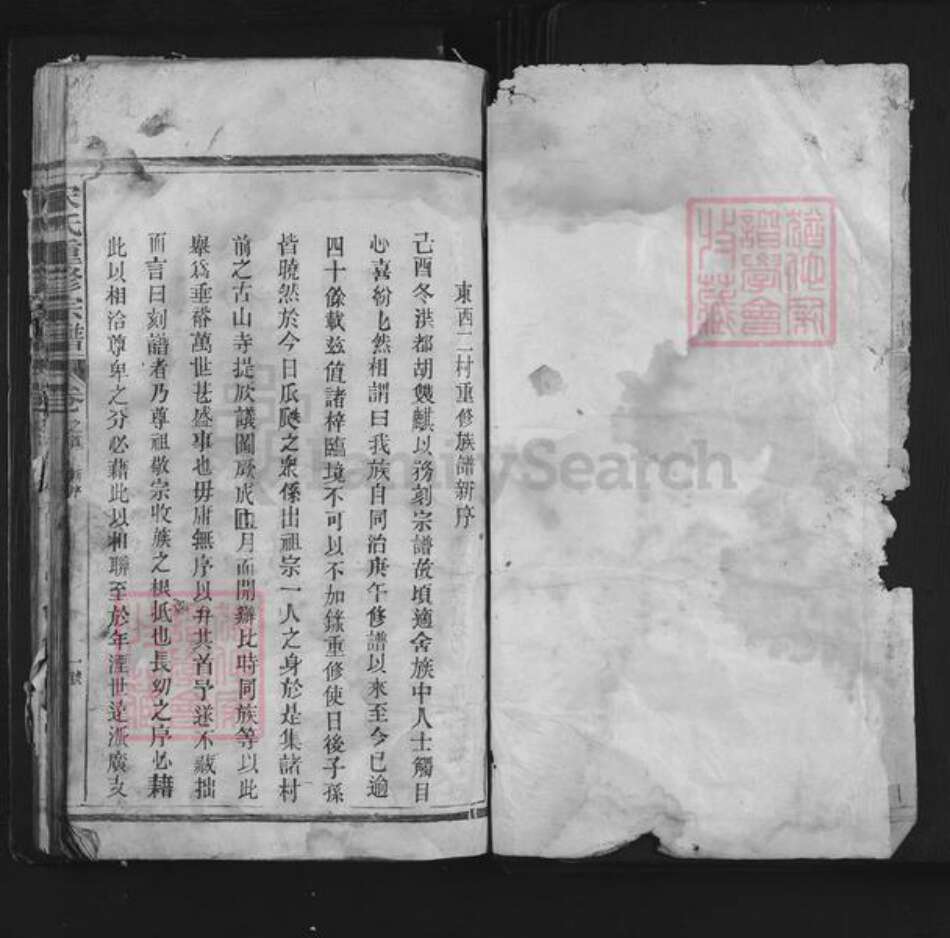 東西二村重修族譜新序
己酉冬洪都胡雙麒以務刻宗譜故頃適舍族中人士觸目
心喜紛紛然相謂曰我族自同治庚午修譜以來至今已逾
四十餘載茲值諸梓臨境不可以不加錄重修使日後子孫
皆曉然於今日瓜瓞之衆係出祖宗一人之身於是集諸村
前之古山寺提欣議圖厥成月而開辦比時同族等以此
舉爲垂裕萬世甚盛事也毋庸無序以弁其首予遂不藏拙
而言曰刻譜者乃尊祖敬宗收族之根抵也長幼之序必藉
此以相洽尊卑之分必藉此以相聯至於年湮世遠漸廣支
宋氏重修宗譜 卷之首 新序 一號
FamilySearch